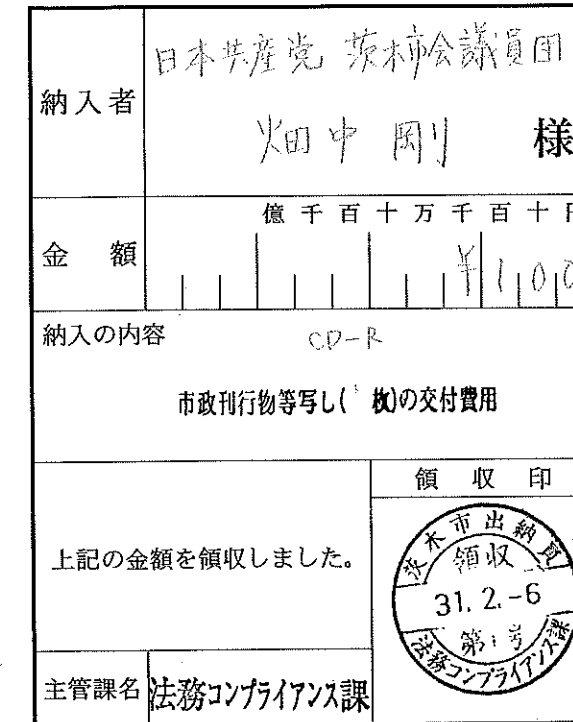 納入者
日本共産党 茨木市会議員団
畑中 剛 様
億千百十万千百十円
金額 ¥100
納入の内容 CD-R
市政刊行物等写し( 枚)の交付費用
領収印
上記の金額を領収しました。
茨木市出納員
領収
31.2.-6
第1号
法務コンプライアンス課
主管課名 法務コンプライアンス課